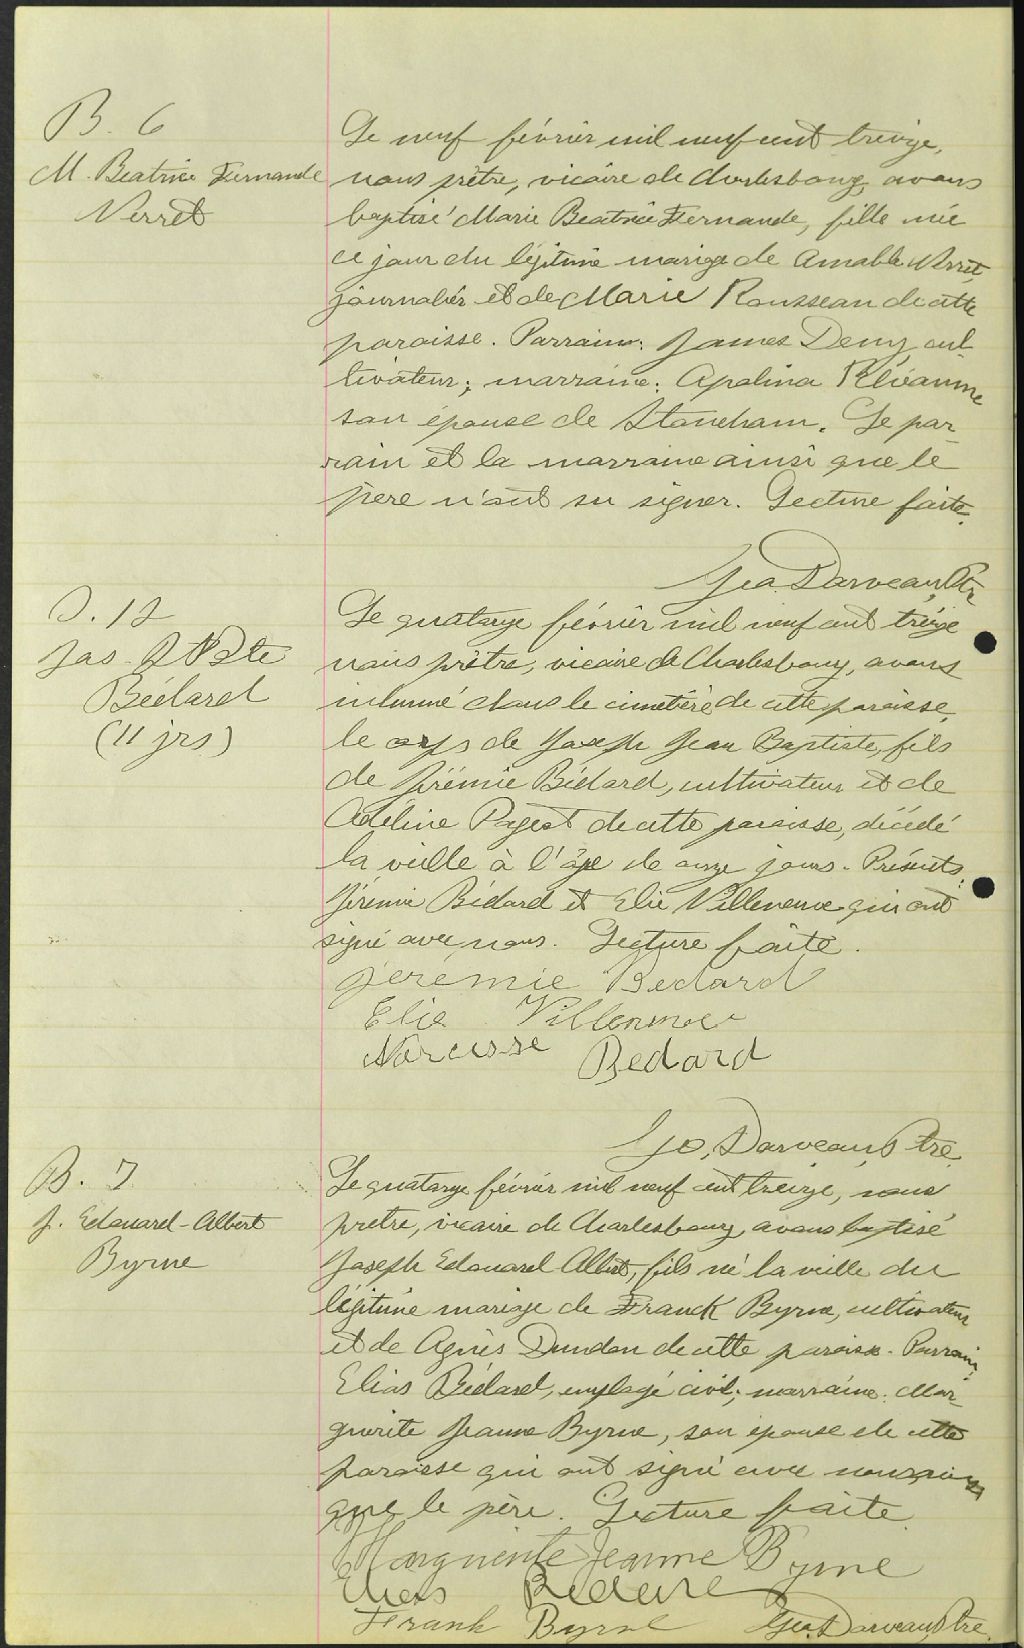 B. 6
M. Beatrice Fernande
Verret
Le neuf février mil neuf cent treize,
nous prêtre, vicaire de Charlesbourg, avons
baptisé Marie Beatrice Fernande, fille née
ce jour du légitime mariage de Amable Verret,
journalier et de Marie Rousseau de cette
paroisse. Parrain: James Deny, cul-
tivateur; marraine: Apolina
son épouse de Stoneham. Le par-
rain et la marraine ainsi que le
père n'ont su signer. Lecture faite.
Geo. Darveau, Ptr
S. 12
Jos. J. Bte
Bédard
(11 jrs)
Le quatorze février mil neuf cent treize
nous prêtre, vicaire de Charlesbourg, avons
inhumé dans le cimetière de cette paroisse,
le corps de Joseph Jean Baptiste, fils
de Jérémie Bédard, cultivateur et de
Adéline Pageot de cette paroisse, décédé
la veille à l'âge de onze jours. Présents:
Jérémie Bédard et Elie Villeneuve qui ont
signé avec nous. Lecture faite.
Jérémie Bedard
Elie Villeneuve
Narcisse Bedard
Geo. Darveau, Ptre
B. 7
J. Edouard-Albert
Byrne
Le quatorze février mil neuf cent treize, nous
prêtre, vicaire de Charlesbourg, avons baptisé
Joseph Edouard Albert, fils né la veille du
légitime mariage de Franck Byrne, cultivateur
et de Agnès Dundon de cette paroisse. Parrain,
Elias Bédard, employé civil; marraine: Mar-
guerite Jeanne Byrne, son épouse de cette
paroisse qui ont signé avec nous, ainsi
que le père. Lecture faite.
Marguerite Jeanne Byrne
Elias Bédard
Frank Byrne Geo. Darveau, Ptre.